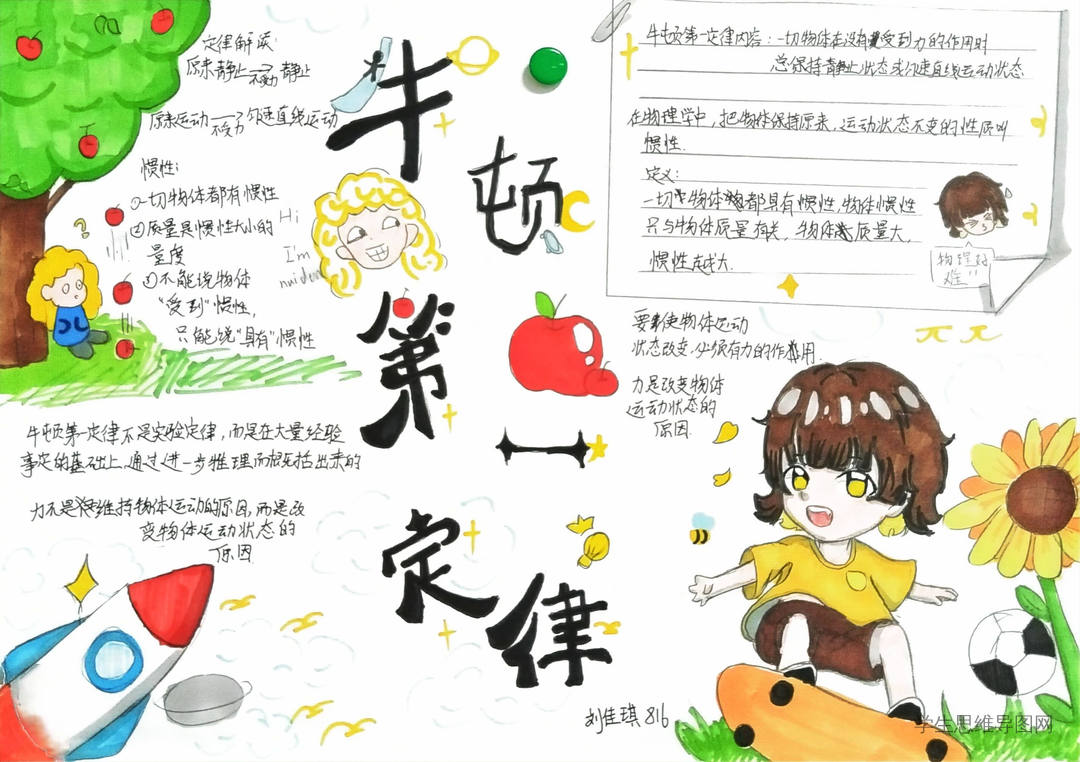 牛顿第一定律
定律解读:
原来静止→静止
不受力
原来运动→匀速直线运动
不受力
惯性:
①一切物体都有惯性
②质量是惯性大小的
量度
③不能说物体
“受到”惯性,
只能说“具有”惯性
Hi
I'm
牛顿第一定律内容:一切物体在没有受到力的作用时
总保持静止状态或匀速直线运动状态
在物理学中,把物体保持原来,运动状态不变的性质叫
惯性.
定义:
一切物体都具有惯性,物体惯性
只与物体质量有关,物体质量大,
惯性越大.
物理好
难!!
要使物体运动
状态改变,必须有力的作用.
力是改变物体
运动状态的
原因.
牛顿第一定律不是实验定律,而是在大量经验
事定的基础上,通过进一步推理而概括出来的
力不是维持物体运动的原因,而是改
变物体运动状态的
原因.
刘佳琪 816
学生思维导图网